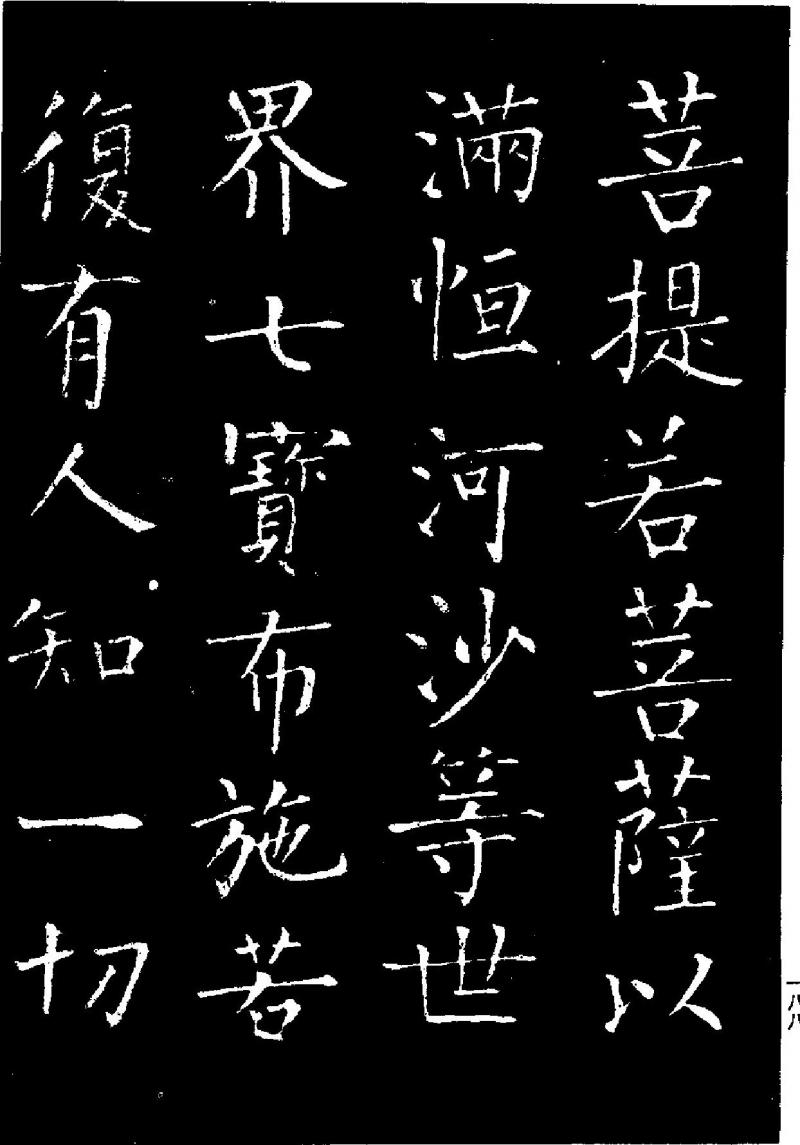 菩提若菩薩以
滿恒河沙等世
界七寶布施若
復有人知一切
一八八